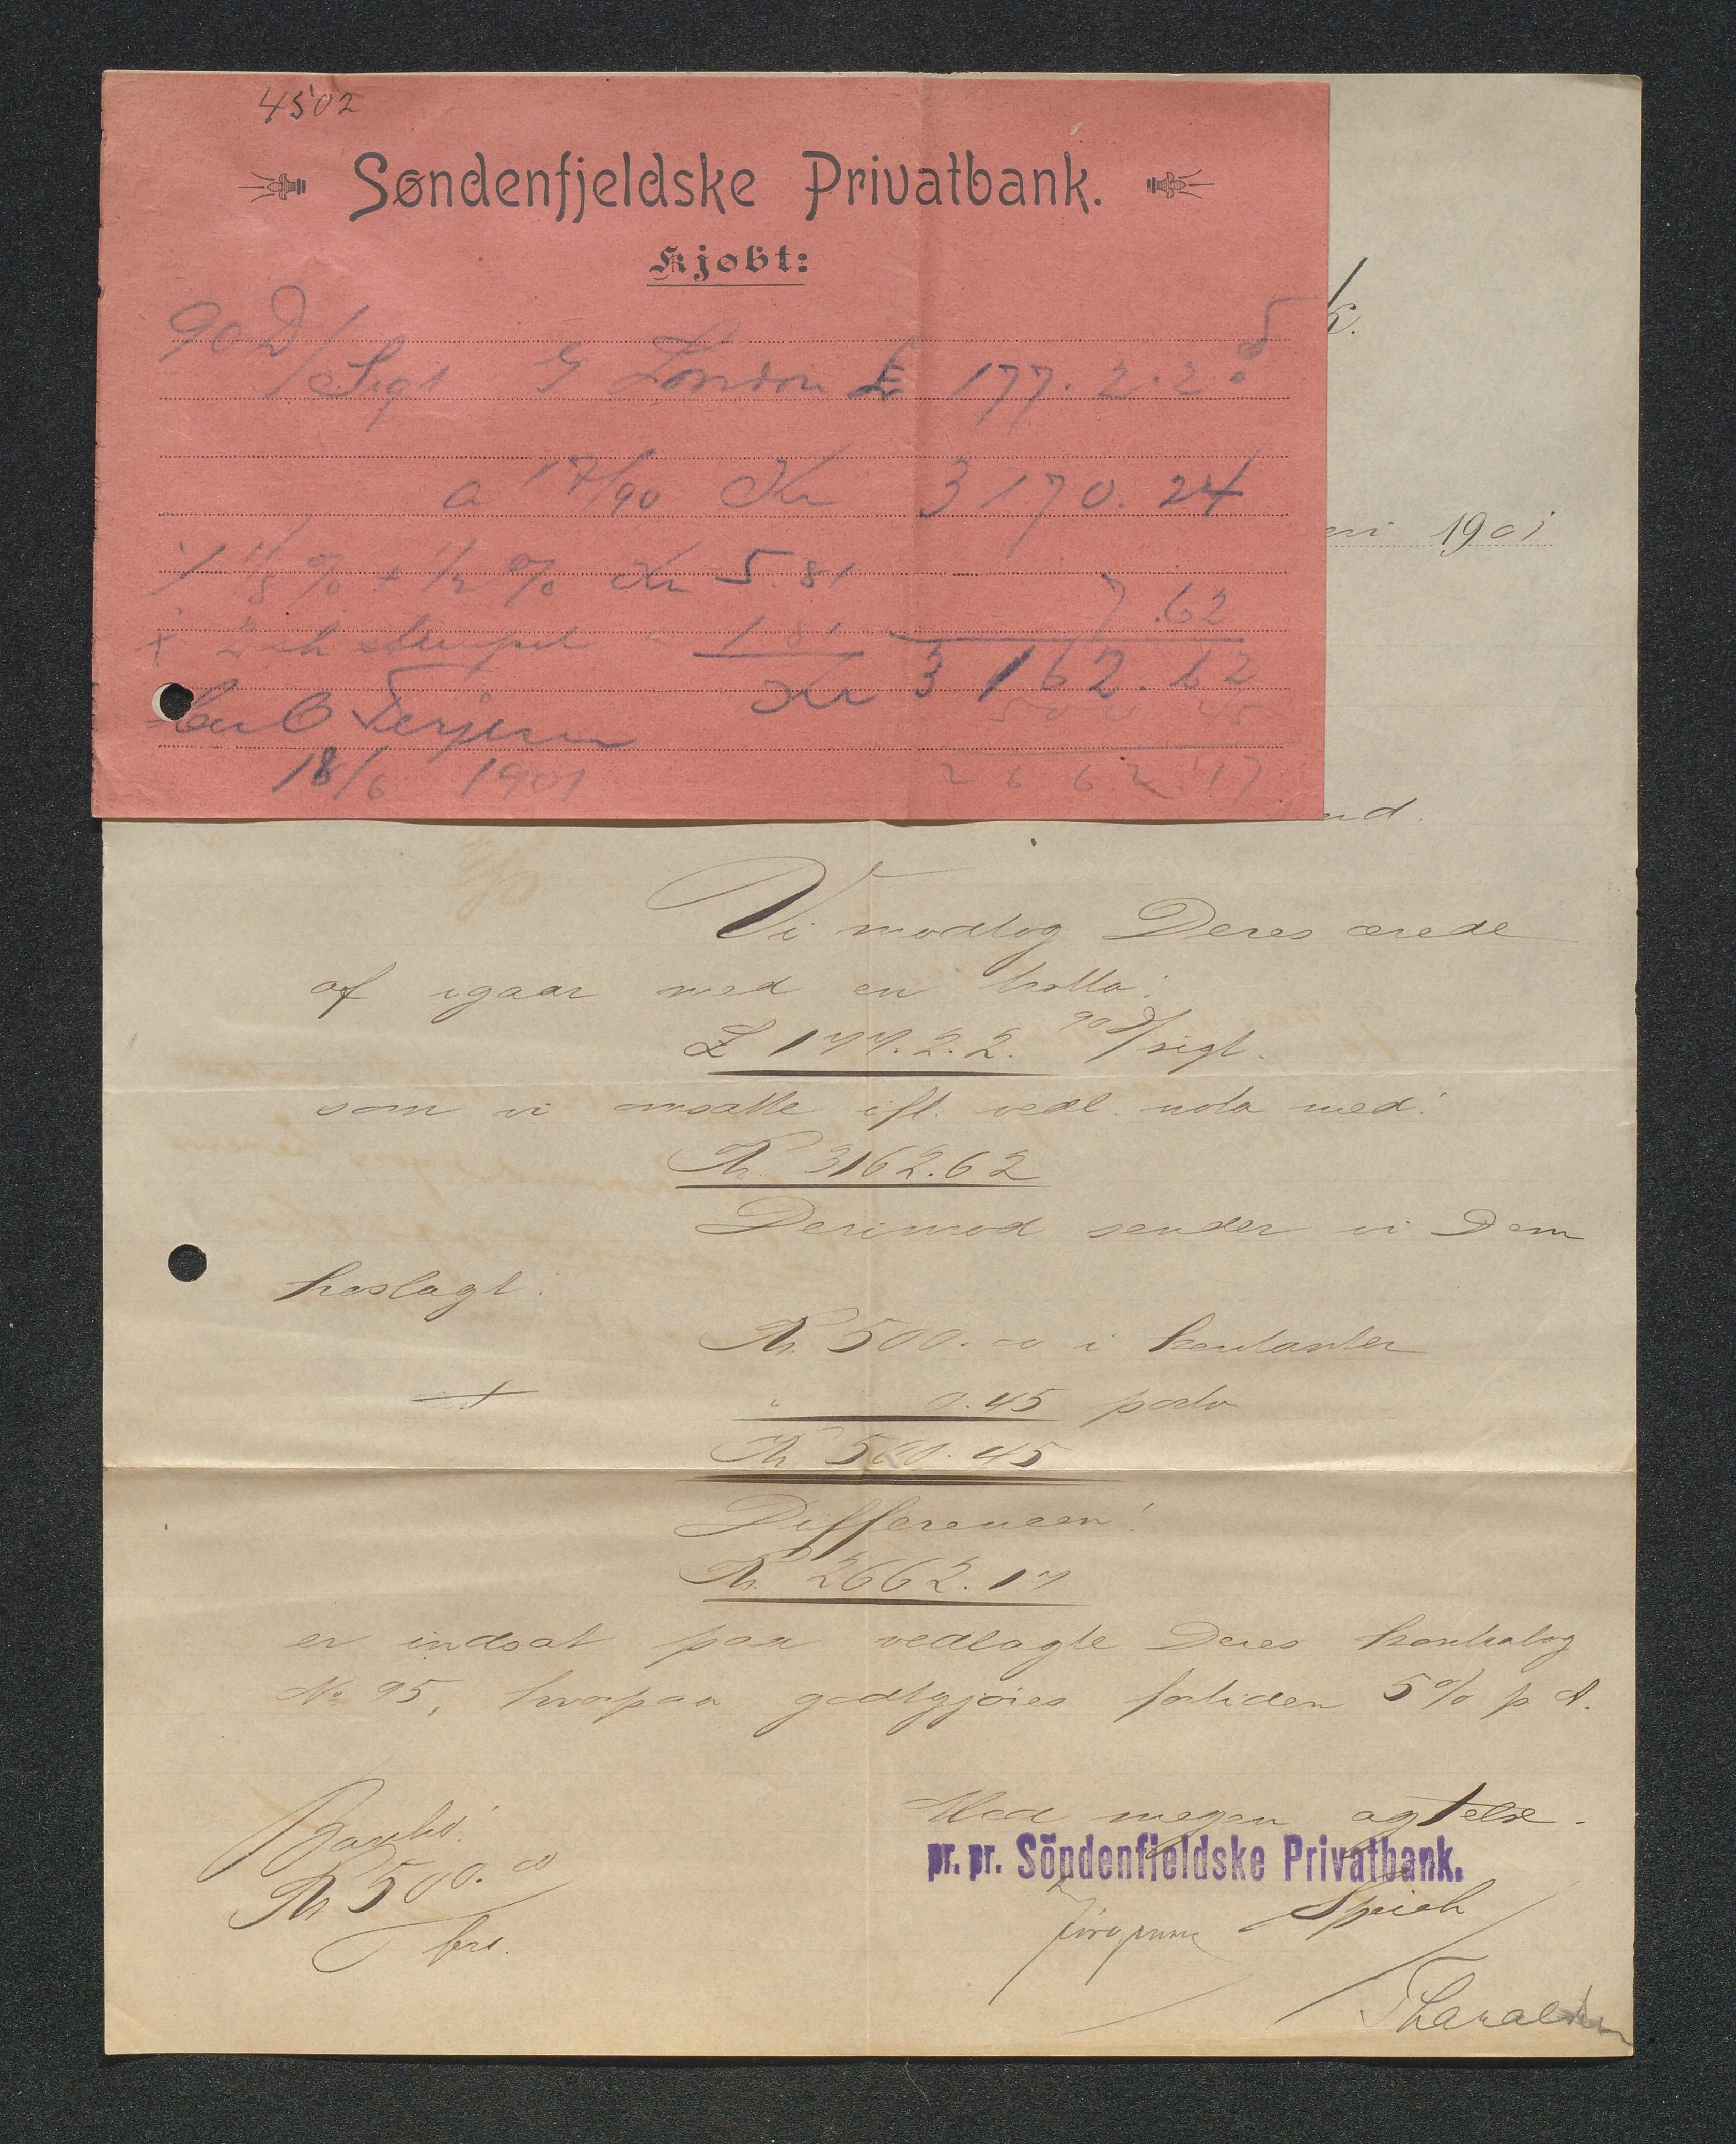 4502
Søndenfjeldske Privatbank.
Kjøbt:
90 D/Sigt London £ 177. 2. 2.
a 17/90 Kr 3170. 24
1/2 % Kr 5.81
7.62
2 sh stempel " 1.81
Kr 3162.62
500 45
C Terjesen
2662.17
18/6 1901
k.
ni 1901
nd.
Vi modtog Deres ærede
af igaar med en tratta:
£ 177. 2. 2. 90 d/sigt.
som vi omsatte ifl. vedl. nota med:
Kr. 3162.62
Derimod sender vi Dem
hoslagt:
Kr. 500.00 i kontanter
+ " 0.45 porto
Kr 500.45
Differencen:
Kr. 2662.17
er indsat paa vedlagte Deres kontrabog
No 95, hvorpaa godtgjøres fortiden 5% p A.
Med megen agtelse.
pr. pr. Söndenfjeldske Privatbank.
Kr 500.00